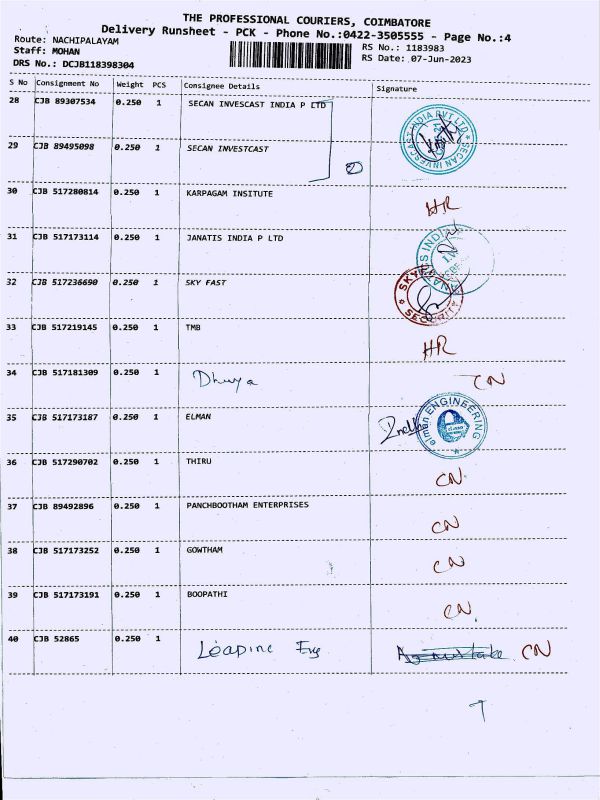 THE PROFESSIONAL COURIERS, COIMBATORE
Delivery Runsheet - PCK - Phone No.:0422-3505555 - Page No.:4
Route: NACHIPALAYAM
Staff: MOHAN
DRS No.: DCJB118398304
RS No.: 1183983
RS Date: 07-Jun-2023
S No Consignment No Weight PCS Consignee Details Signature
28 CJB 89307534 0.250 1 SECAN INVESCAST INDIA P LTD SECAN INVESCAST INDIA PVT LTD
29 CJB 89495098 0.250 1 SECAN INVESTCAST 2
30 CJB 517280814 0.250 1 KARPAGAM INSITUTE HR
31 CJB 517173114 0.250 1 JANATIS INDIA P LTD
32 CJB 517236690 0.250 1 SKY FAST SECURITY
33 CJB 517219145 0.250 1 TMB HR
34 CJB 517181309 0.250 1 Dhuya CN
35 CJB 517173187 0.250 1 ELMAN elman ENGINEERING
36 CJB 517290702 0.250 1 THIRU CN
37 CJB 89492896 0.250 1 PANCHBOOTHAM ENTERPRISES CN
38 CJB 517173252 0.250 1 GOWTHAM CN
39 CJB 517173191 0.250 1 BOOPATHI CN
40 CJB 52865 0.250 1 Loapine Eng CN